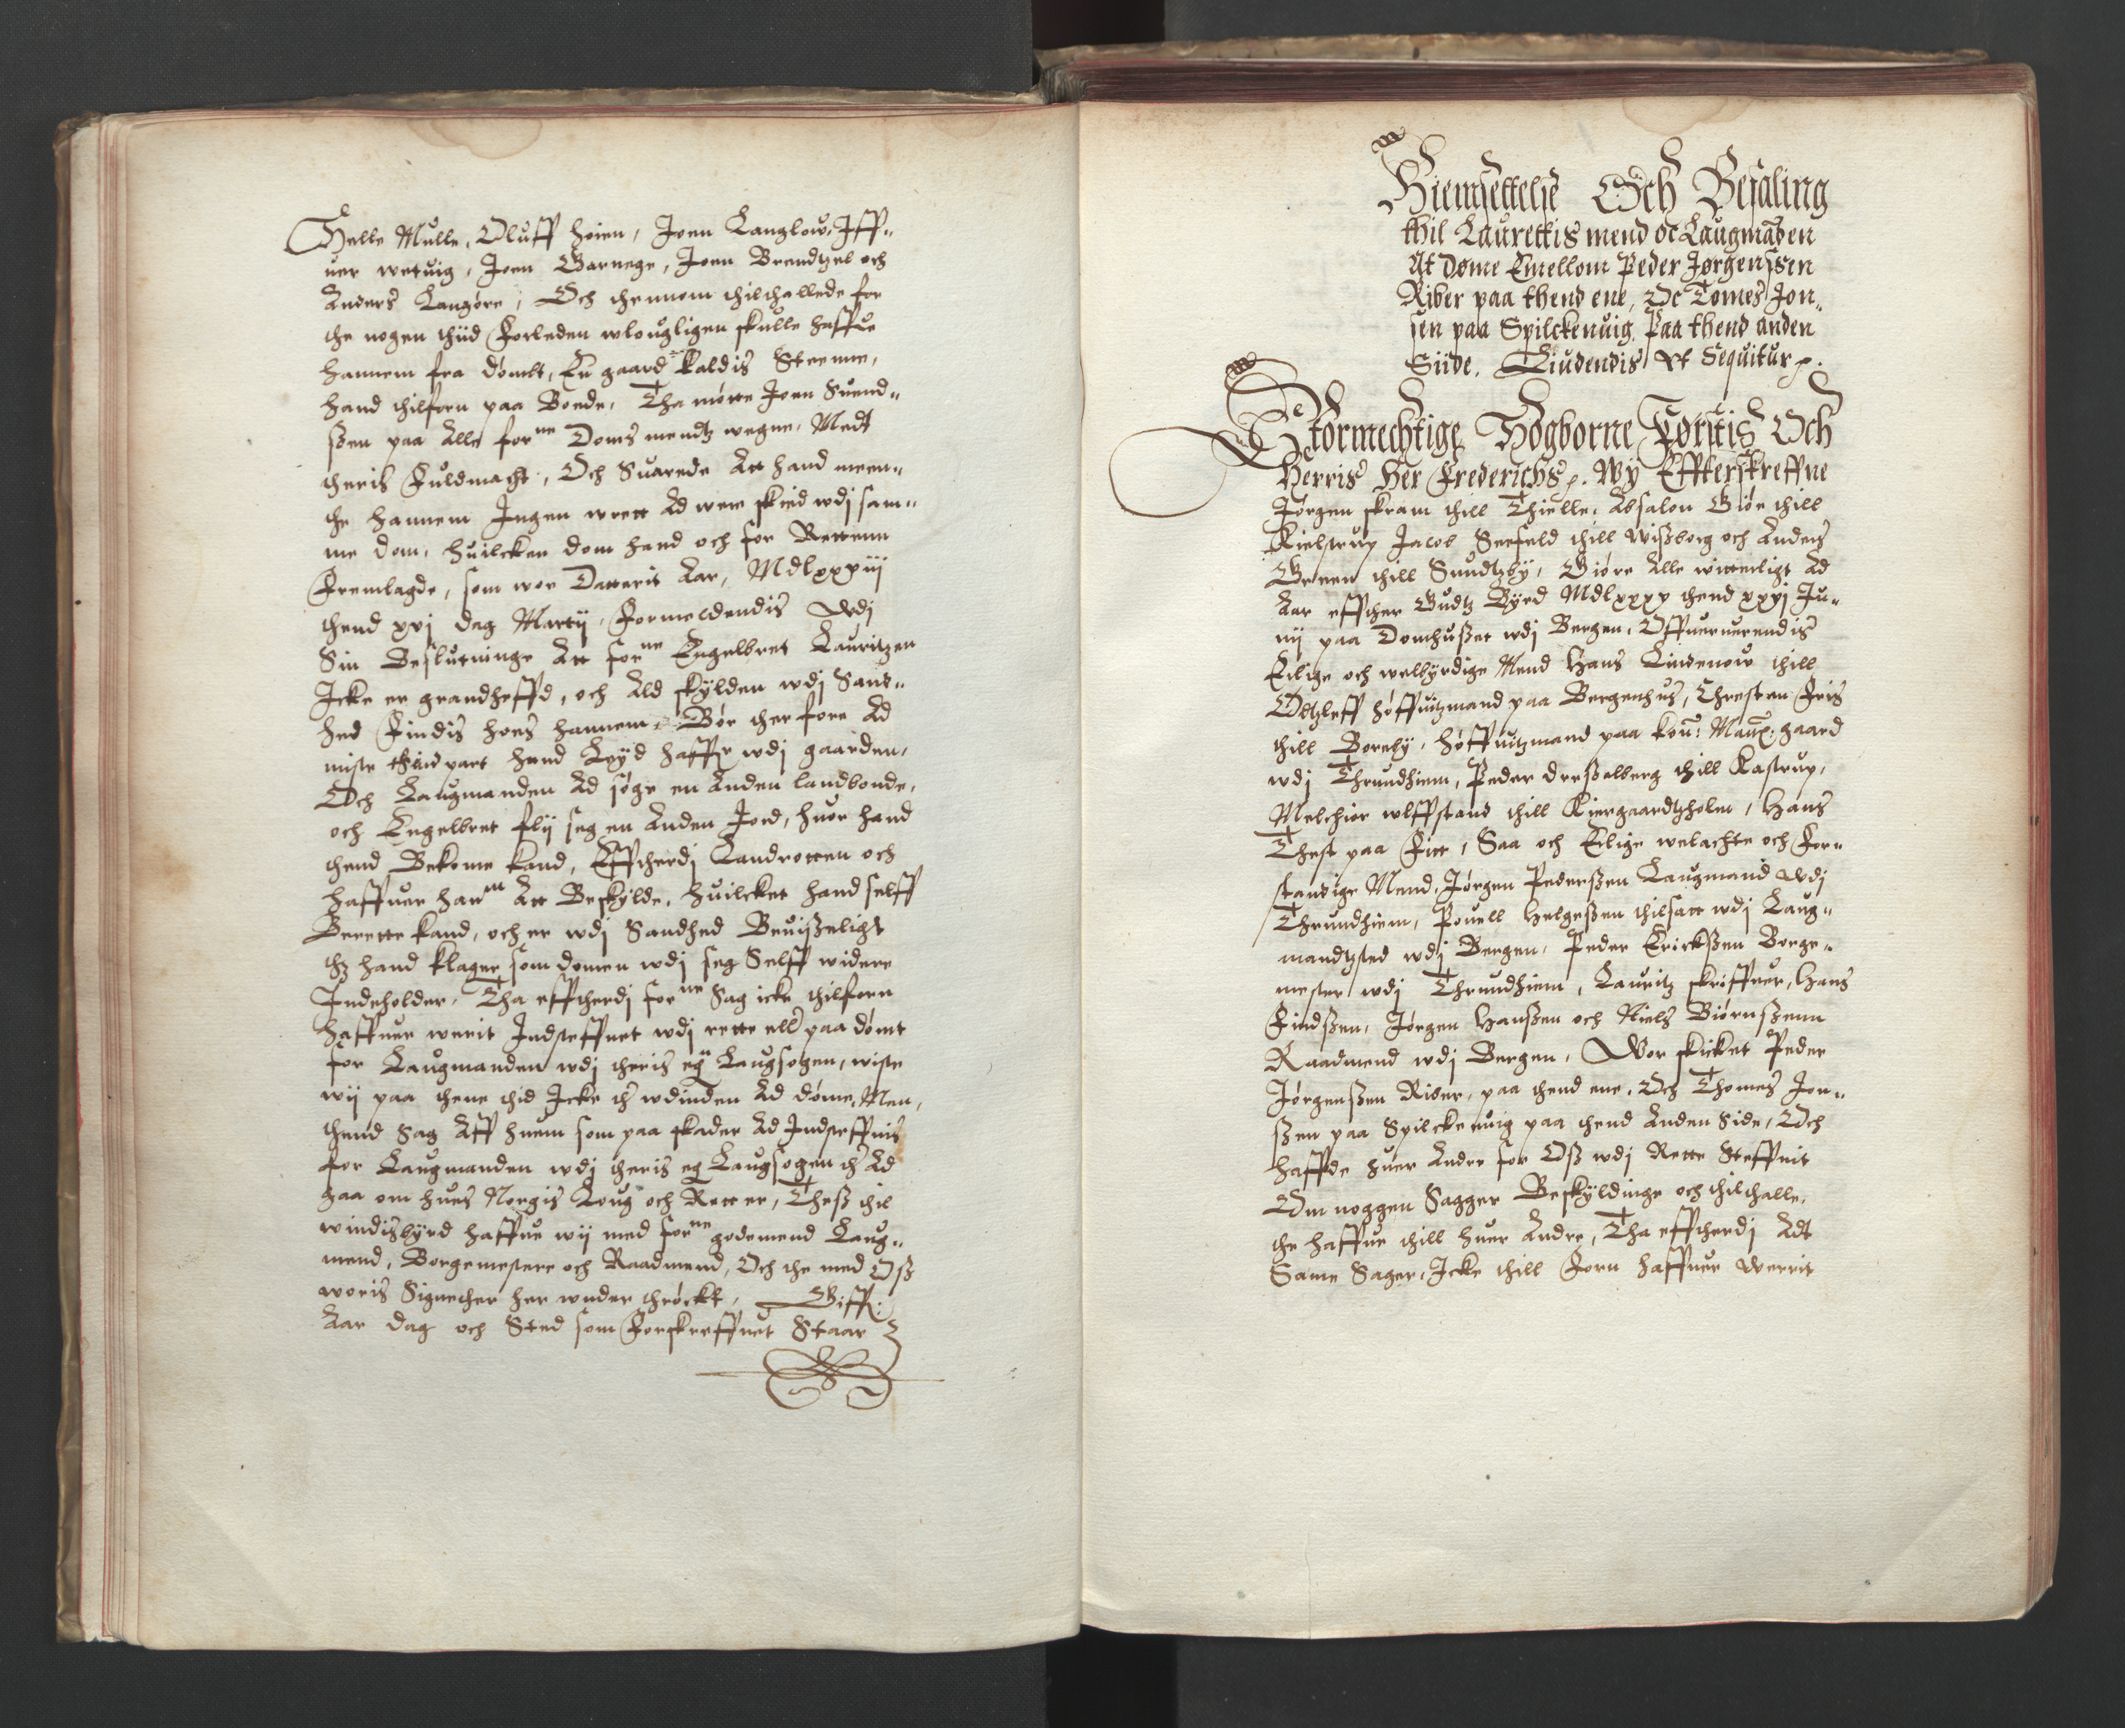 Helle Mulle, Oluff høien, Joen Langlow, Iff-
uer wetuig, Joen Garnege, Joen Brendtzel och
Anders Langøre, Och thennom thilthallede for
the nogen thiid Forleden wlougligen skulle haffue
hannem fra dømbt, En gaard kaldis Steemme,
hand thilforn paa Boede, Tha møtte Joen Suend-
ßen paa Alle for^ne Doms mendtz wegne, Medt
theris Fuldmacht, Och Suarede Att hand meen-
the hannem Ingen wrett Ad were skied wdj sam-
me dom, huilcken dom hand och for Rettenn
Fremlagde, som wor Datterit Aar, Mdlxxxiij
thend xvj dag Martij, Formeldendis Wdj
Sin Beslutninge Att for^ne Engelbret Lauritzen
Icke er grandheffd, och Ald skylden wdj Sand-
hed Findis hoes hannem, Bør therfore Ad
miste thend part hand Leyd haffr wdj gaarden,
Och Laugmanden Ad søge en Anden landbonde,
och Engelbret flij seg en Anden Jord, huor hand
thend Bekome kand, Efftherdj Landrotten och
haffuer han^m Att Beskylde, huilcket hand selff
Berette kand, och er wdj Sandhed Beuißeligt
thz hand klager som domen wdj seg Selff widere
Indeholder, Tha effttherdj for^ne Sag icke thilforn
haffuer werit Indsteffnet wdj rette eller paa dømt
for Laugmanden wdj theris eg Laugsogen, wiste
wij paa thene thid Icke th wdinden Ad døme, Men,
thend Sag Aff huem som paa skader Ad Indsteffnis
for Laugmanden wdj theris eg Laugsogen th Ad
gaa om hues Norgis Loug och Rett er, Theß thil
windisbyrd haffue wij med for^ne godemend Laug-
mend, Borgemestere och Raadmend, Och the med Oß
woris Signether her wnder thrøckt, Giffr:
Aar dag och Sted som Forskreffuet Staar
Hiemsettelse Och Befaling
thil Laurettis mend oc Laugmanden
At Døme Emellom Peder Jørgenssen
Riber paa thend ene, Oc Tomes Jon-
sen paa Spilckeuig, Paa thend anden
Siide. Liudendis Vt Sequitur.
Stormechtige Høgborne Førstis Och
Herris Her Frederichs. Wy Effterskreffne
Jørgen skram thill Thielle, Absalon Giøe thill
Kielstrup Jacob Seefeld thill Wißborg och Anders
Green thill Sundtzby, Giøre Alle witterligt Ad
Aar effther Gudtz Byrd Mdlxxxx thend xxvj Ju-
nij paa Domhußet wdj Bergen, Offueruerendis
Erlige och welbyrdige Mend Hans Lindenow thill
Ødtzleff høffuitzmand paa Bergenhus, Christen Friis
thill Boreby, høffuitzmand paa kon: Matt: gaard
wdj Thrundhiem, Peder dreßelberg thill Kastrup,
Melchior wlffstand thill Kiergaardtzholm, Hans
Thest paa Fitt, Saa och Erlige welachte och For-
standige Mend, Jørgen Pederßen Laugmand Wdj
Thrundhiem, Pouell Helgeßen thilsatt wdj Laug-
mandtzsted wdj Bergen, Peder Erickßen Borge-
mester wdj Thrundhiem, Lauritz skriffuer, Hans
Findßen, Jørgen Hanßen och Niels Biørnßenn
Raadmend wdj Bergen, Wor skicket Peder
Jørgenßen Riber, paa thend ene, Och Thomes Jon-
ßen paa Spilckeuig paa thend Anden Side, Och
haffde huer Andre for Oß wdj Rette Steffnit
Om noggen Sagger Beskyldinge och thilthalle,
the haffue thill huer Andre, Tha effttherdj Adt
Same Sager, Icke thill Forn haffuer Werrit